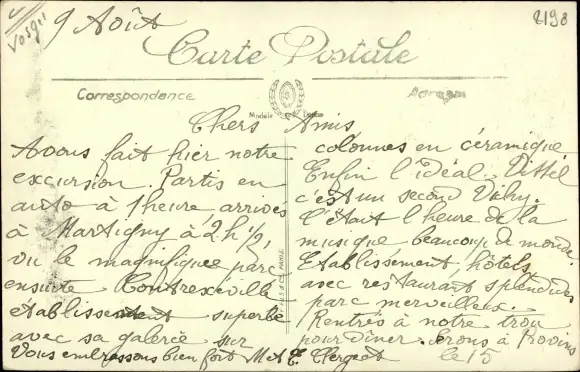 Vosges
9 Août
8198
Carte Postale
Correspondance
Modèle Déposé
Chers Amis
Avons fait hier notre
excursion. Partis en
auto à 1 heure arrivés
à Martigny à 2h 1/2,
vu le magnifique parc
ensuite Contrexeville
etablissement superbe
avec sa galerie sur
colonnes en céramique
Enfin l'idéal. Vittel
c'est un second Vichy.
C'était l'heure de la
musique, beaucoup de monde.
Etablissement, hôtels
avec restaurant splendides
parc merveilleux.
Rentrés à notre trou
pour dîner. Serons à Provins
le 15
Vous embrassons bien fort M et E. Clergeot